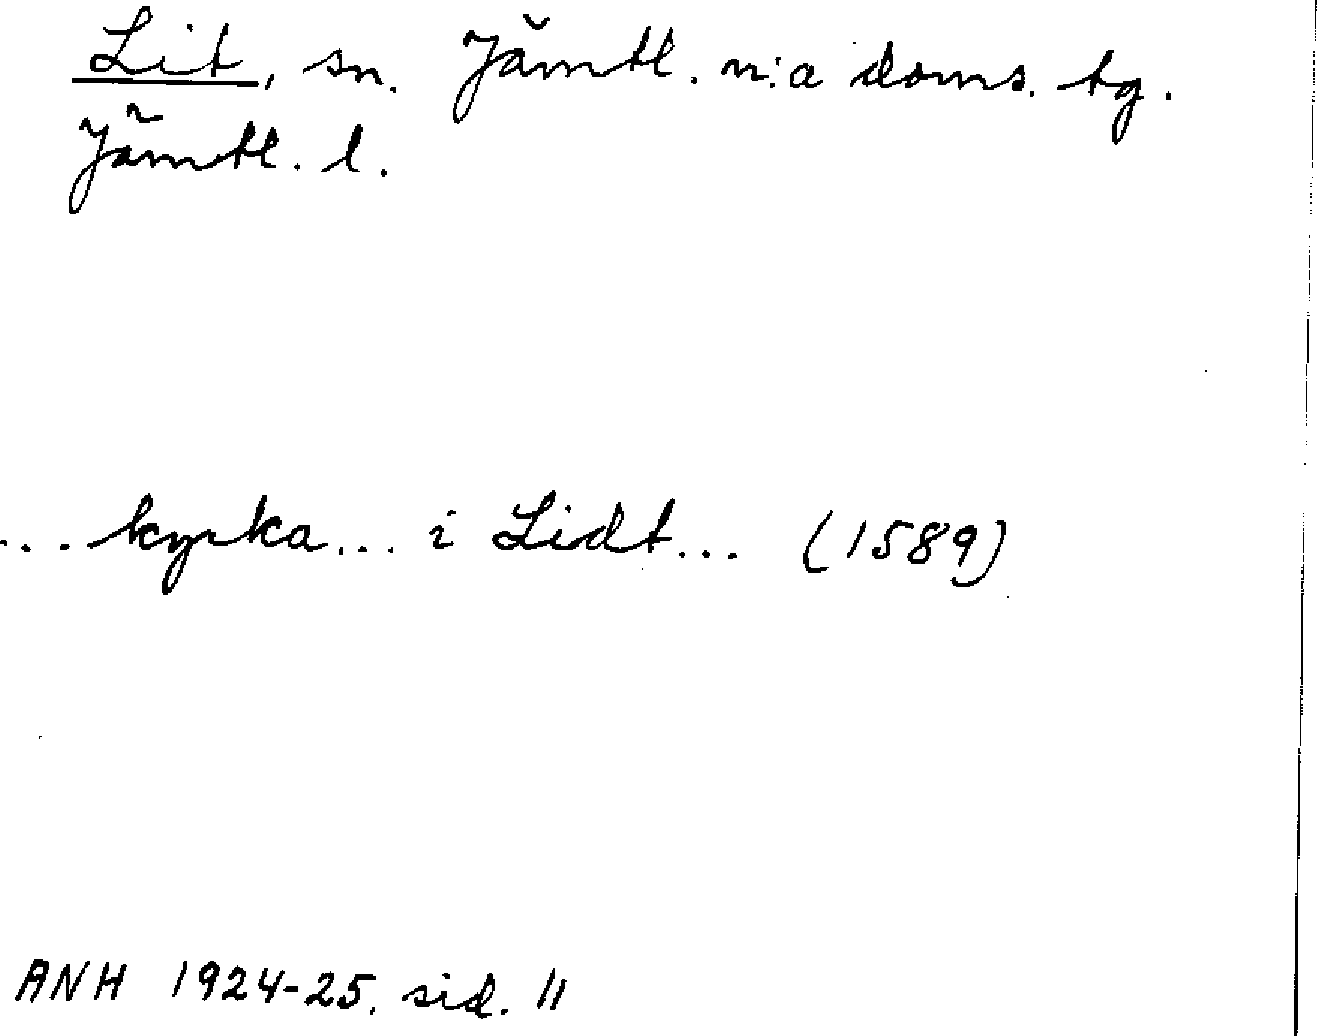 Lit, sn. Jämtl. n:a doms. tg.
Jämtl. l.
... kyrka... i Lidt... (1589)
ANH 1924-25, sid. 11